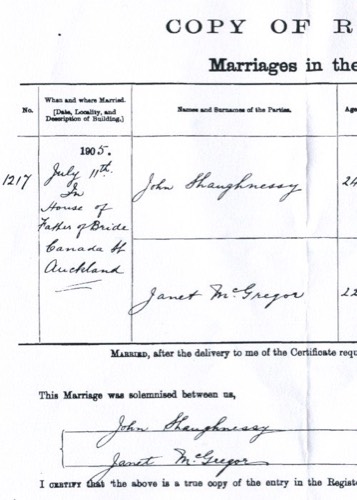 COPY OF R
Marriages in the
No.
When and where Married.
(Date, Locality, and
Description of Building.)
Names and Surnames of the Parties.
Age
1217
1905.
July 11th.
In
House of
Father of Bride
Canada St
Auckland
John Shaughnessy
24
Janet McGregor
22
MARRIED, after the delivery to me of the Certificate requ
This Marriage was solemnised between us,
John Shaughnessy
Janet McGregor
I CERTIFY that the above is a true copy of the entry in the Registe